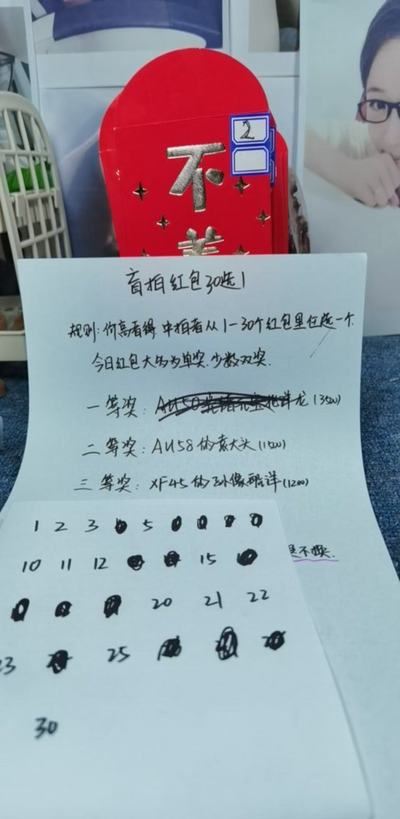 2
不
盲拍红包30选1
规则:价高者得 中拍者从1-30个红包里任选一个
今日红包大多为单奖.少数双奖
一等奖: 洋龙(3500)
二等奖: AU58的袁大头(1500)
三等奖: XF45的孙像 洋(1200)
1 2 3 5
10 11 12 15
20 21 22
23 25
30